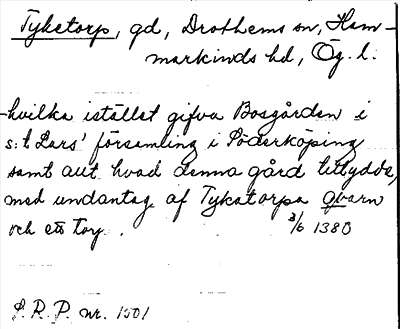 Tyketorp, gd, Drothems sn, Ham-
markinds hd, Ög. l.
-hvilka istället gifva Bosgården i
s:t Lars' församling i Söderköping
samt allt hvad denna gård tillydde,
med undantag af Tykatorpa qvarn
och ett torp. 3/6 1380
S. R. P. nr. 1501